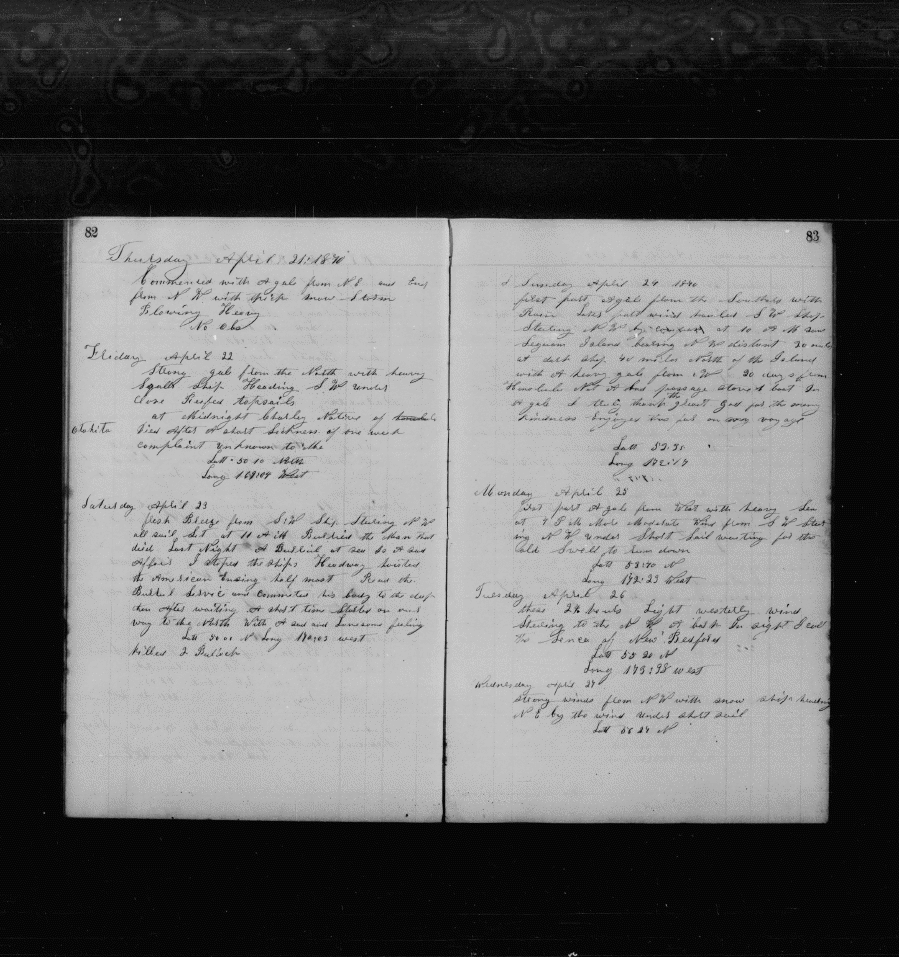 82
Thursday April 21 1870
Commenced with A gale from N E and End
from N W with thick snow Storm
Blowing Heavy
No Obs
Friday April 22
Strong gale from the North with heavy
Squalls Ship Heading S W under
Close Reefed topsails
at Midnight Charley Native of
Otahita died After A short Sickness of one week
complaint unknown to Me
Latt 50 10 North
Long West
Saturday April 23
fresh Breeze from S W Ship Steering N W
all sail Set at 11 A M Burried the Man that
died Last Night A Burrial at sea is A sad
Affair I stoped the ships Headway hoisted
the American Ensign half mast Read the
Burial Service and Committed his body to the deep
then After waiting A short time Started on our
way to the North With A sad and Lonesome feeling
Latt N Long west
killed 2
83
Sunday April 24 1870
first part A gale from the Southard with
Rain Later part wind hauled S W Ship
Steering N W by compass at 10 A M saw
Seguam Island bearing N W distant 30 miles
at dark Ship 40 miles North of the Island
with A heavy gale from 30 days from
Honolulu Not A bad passage Stove A boat In
A gale I truly thank the great God for the many
kindness Enjoyed thus far on my voyage
Latt 53:35
Long 172:17
Monday April 25
first part A gale from West with heavy Sea
at P M More Moderate Wind from S W Steer
ing N W under Short Sail waiting for the
Old Swell to run down
Latt N
Long 172:23 West
Tuesday April 26
these 24 hours Light westerly wind
Steering to the N W A bark In sight I call
the Seneca of New Bedford
Latt 55 20 N
Long west
Wednesday April 27
Strong winds from N W with snow ship heading
N E by the wind under short sail
Latt 56 24 N